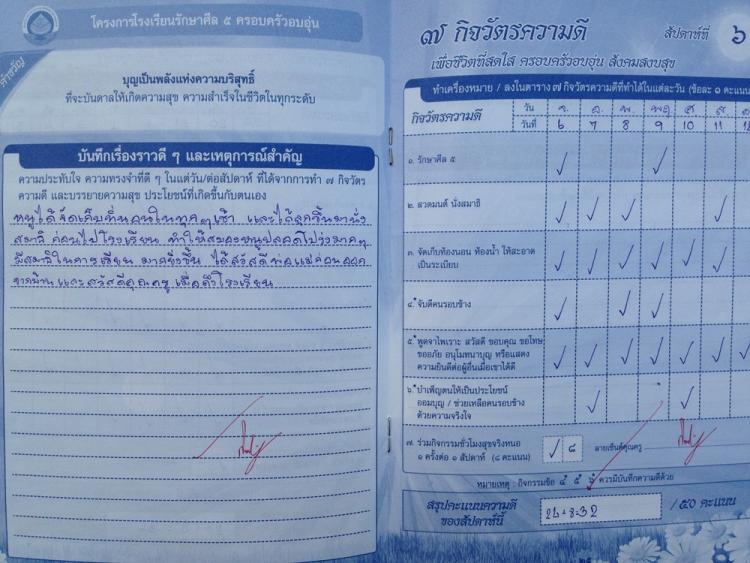 โครงการโรงเรียนรักษาศีล ๕ ครอบครัวอบอุ่น
คำขวัญ
บุญเป็นพลังแห่งความบริสุทธิ์
ที่จะบันดาลให้เกิดความสุข ความสำเร็จในชีวิตในทุกระดับ
บันทึกเรื่องราวดี ๆ และเหตุการณ์สำคัญ
ความประทับใจ ความทรงจำที่ดี ๆ ในแต่วัน/ต่อสัปดาห์ ที่ได้จากการทำ ๗ กิจวัตร
ความดี และบรรยายความสุข ประโยชน์ที่เกิดขึ้นกับตนเอง
หนูได้จัดเก็บที่นอนในทุกๆเช้า และได้ลุกขึ้นมานั่ง
สมาธิ ก่อนไปโรงเรียน ทำให้สมองหนูปลอดโปร่งมากๆ
มีสมาธิในการเรียน มากยิ่งขึ้น ได้สวัสดีพ่อแม่ก่อนออก
จากบ้าน และสวัสดีคุณครู เมื่อถึงโรงเรียน
๗ กิจวัตรความดี สัปดาห์ที่ ๖
เพื่อชีวิตที่สดใส ครอบครัวอบอุ่น สังคมสงบสุข
ทำเครื่องหมาย / ลงในตาราง ๗ กิจวัตรความดีที่ทำได้ในแต่ละวัน (ข้อละ ๑ คะแนน
กิจวัตรความดี วัน จ. อ. พ. พฤ ศ. ส
วันที่ 6 7 8 9 10 11
๑. รักษาศีล ๕
๒. สวดมนต์ นั่งสมาธิ
๓. จัดเก็บห้องนอน ห้องน้ำ ให้สะอาด
เป็นระเบียบ
๔. จับดีคนรอบข้าง
๕. พูดจาไพเราะ สวัสดี ขอบคุณ ขอโทษ
ขออภัย อนุโมทนาบุญ หรือแสดง
ความยินดีต่อผู้อื่นเมื่อเขาได้ดี
๖. บำเพ็ญตนให้เป็นประโยชน์
ออมบุญ / ช่วยเหลือคนรอบข้าง
ด้วยความจริงใจ
๗. ร่วมกิจกรรมชั่วโมงสุขจริงหนอ
๑ ครั้งต่อ ๑ สัปดาห์ (๘ คะแนน) ๘ ลายเซ็นต์คุณครู
หมายเหตุ : กิจกรรมข้อ ๔ ๕ ๖ ควรมีบันทึกความดีด้วย
สรุปคะแนนความดี
ของสัปดาห์นี้ 24+8=32 / ๕๐ คะแนน